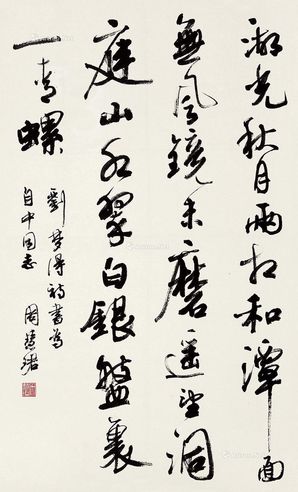 湖光秋月兩相和潭面
無風鏡未磨遥望洞
庭山水翠白銀盤裏
一青螺
劉梦得詩書為
自中同志 周慧珺